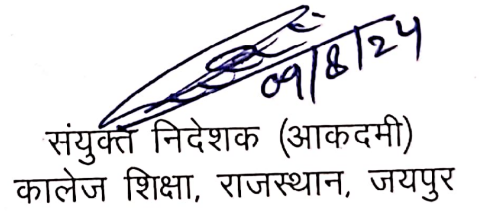 09/8/24
संयुक्त निदेशक (आकदमी)
कालेज शिक्षा, राजस्थान, जयपुर